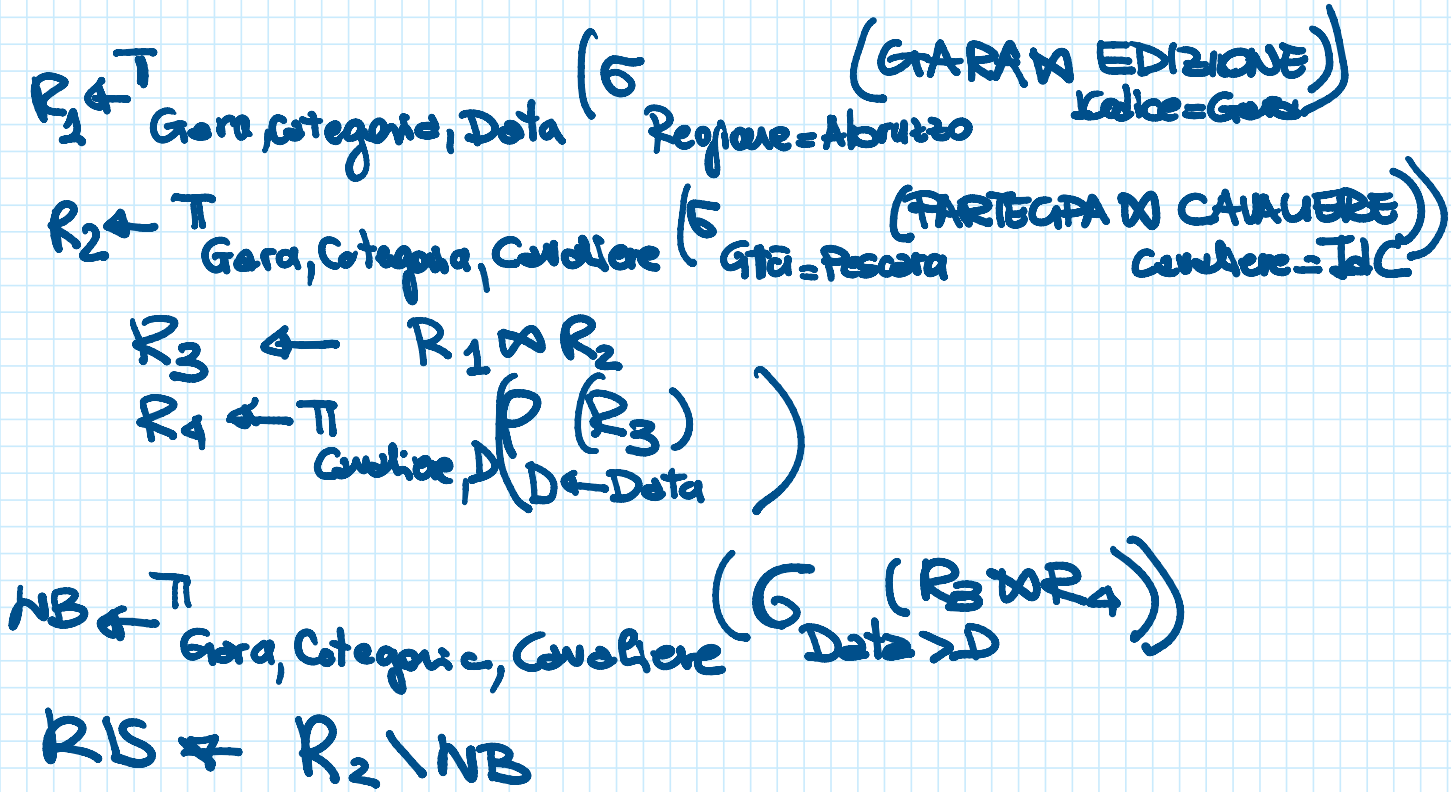 R1 ← π Gara, Categoria, Data (σ Regione=Abruzzo (GARA ⋈ Codice=Gara EDIZIONE))
R2 ← π Gara, Categoria, Cavaliere (σ Città=Pescara (PARTECIPA ⋈ Cavaliere=IdC CAVALIERE))
R3 ← R1 ⋈ R2
R4 ← π Cavaliere, D (ρ D←Data (R3))
NB ← π Gara, Categoria, Cavaliere (σ Data>D (R3 ⋈ R4))
RIS ← R2 \ NB